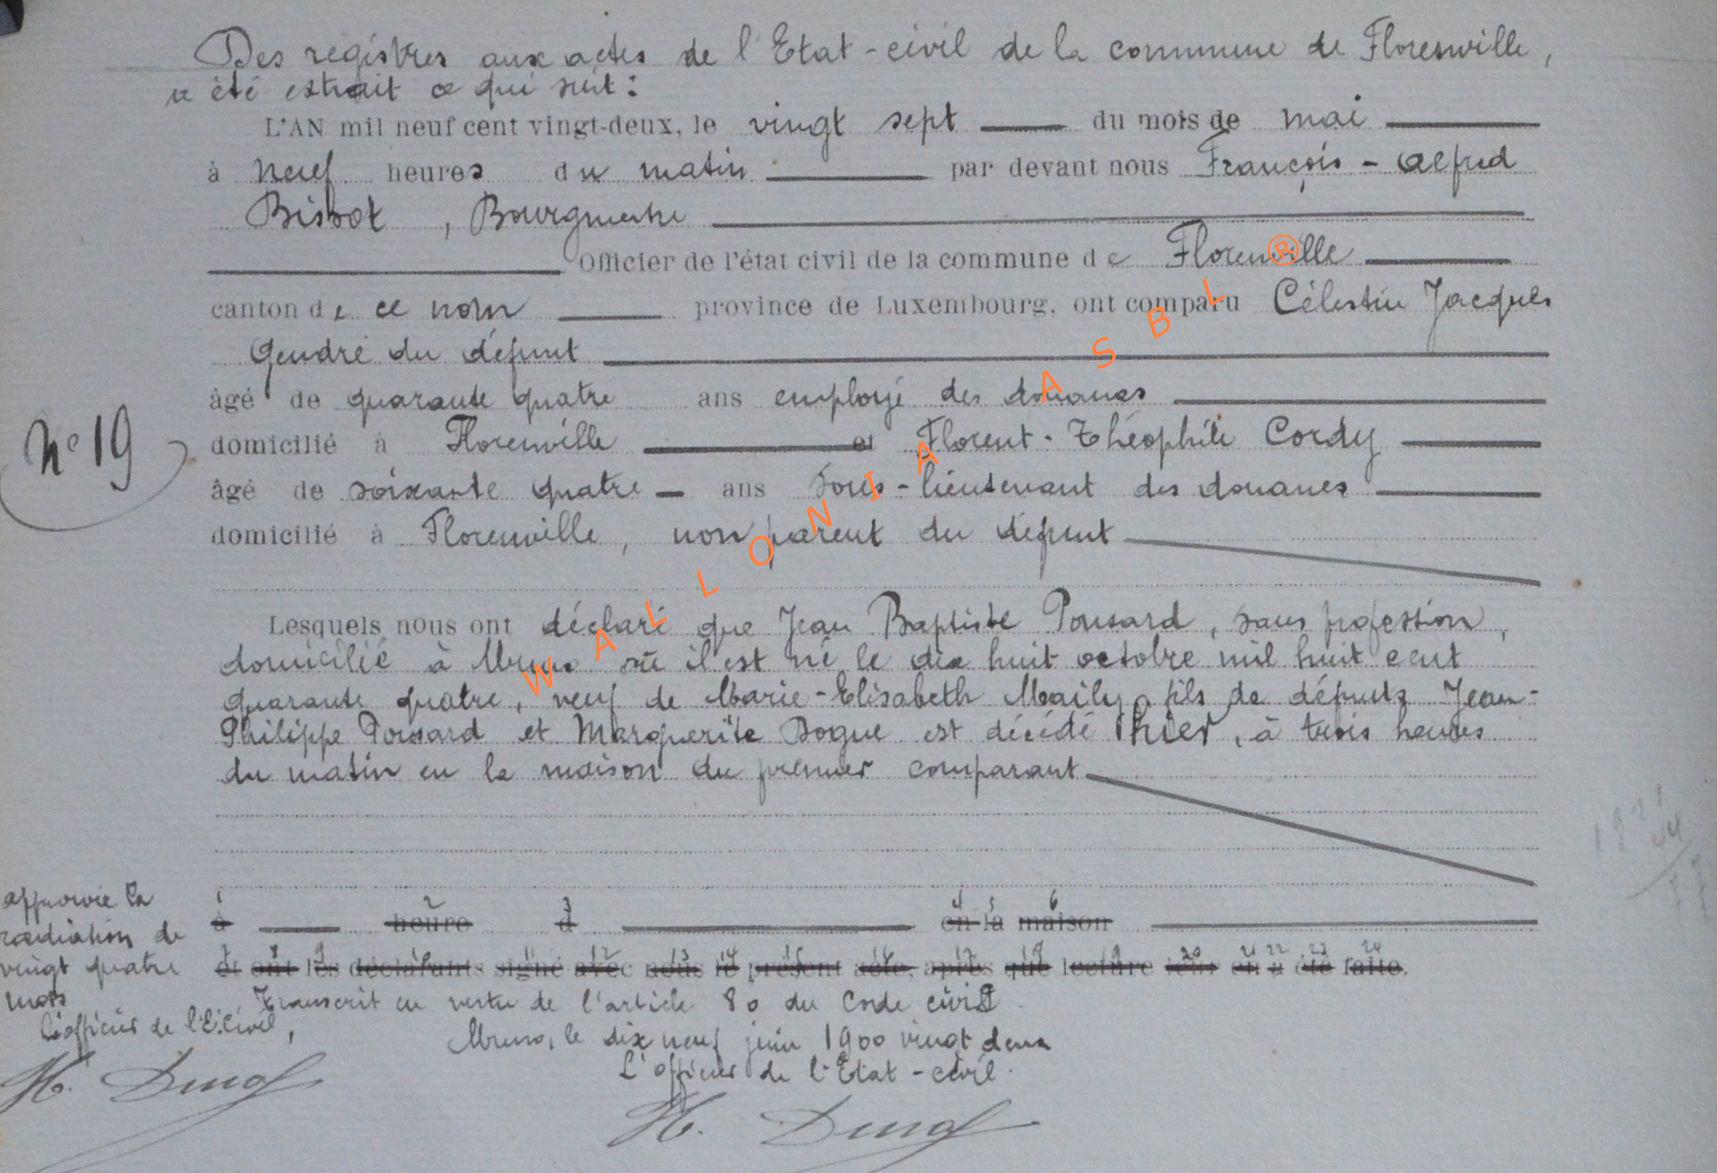 Des registres aux actes de l'Etat-civil de la commune de Florenville,
a été extrait ce qui suit :
L'AN mil neuf cent vingt-deux, le vingt sept du mois de mai
à neuf heures du matin par devant nous François - Alfred
Bisbot, Bourgmestre
Officier de l'état civil de la commune de Florenville
canton de ce nom province de Luxembourg, ont comparu Célestin Jacques
Gendre du défunt
âgé de quarante quatre ans employé des douanes
N° 19
domicilié à Florenville et Florent-Théophile Cordy
âgé de soixante quatre ans sous-lieutenant des douanes
domicilié à Florenville, non parent du défunt
WALLONIA ASBL ®
Lesquels nous ont déclaré que Jean Baptiste Ponsard, sans profession,
domicilié à Muno où il est né le dix huit octobre mil huit cent
quarante quatre, veuf de Marie-Elisabeth Maily, fils de défunts Jean-
Philippe Ponsard et Marguerite Bogue est décédé hier, à trois heures
du matin en la maison du premier comparant
1 2 3 4 5 6
à heure d en la maison
et ont les déclarants signé avec nous le présent acte, après que lecture leur en a été faite.
approuvé la
radiation de
vingt quatre
mots
L'officier de l'E.civil,
Transcrit en vertu de l'article 80 du Code civil
Muno, le dix neuf juin 1900 vingt deux
L'officier de l'Etat-civil.